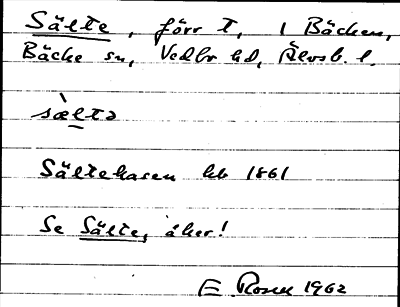 Sälte, förr t, 1 Bäcken,
Bäcke sn, Vedbo hd, Älvsb. l.
sæ̀ltə
Sältehasen hb 1861
Se Sälte, åker!
E Rosen 1962